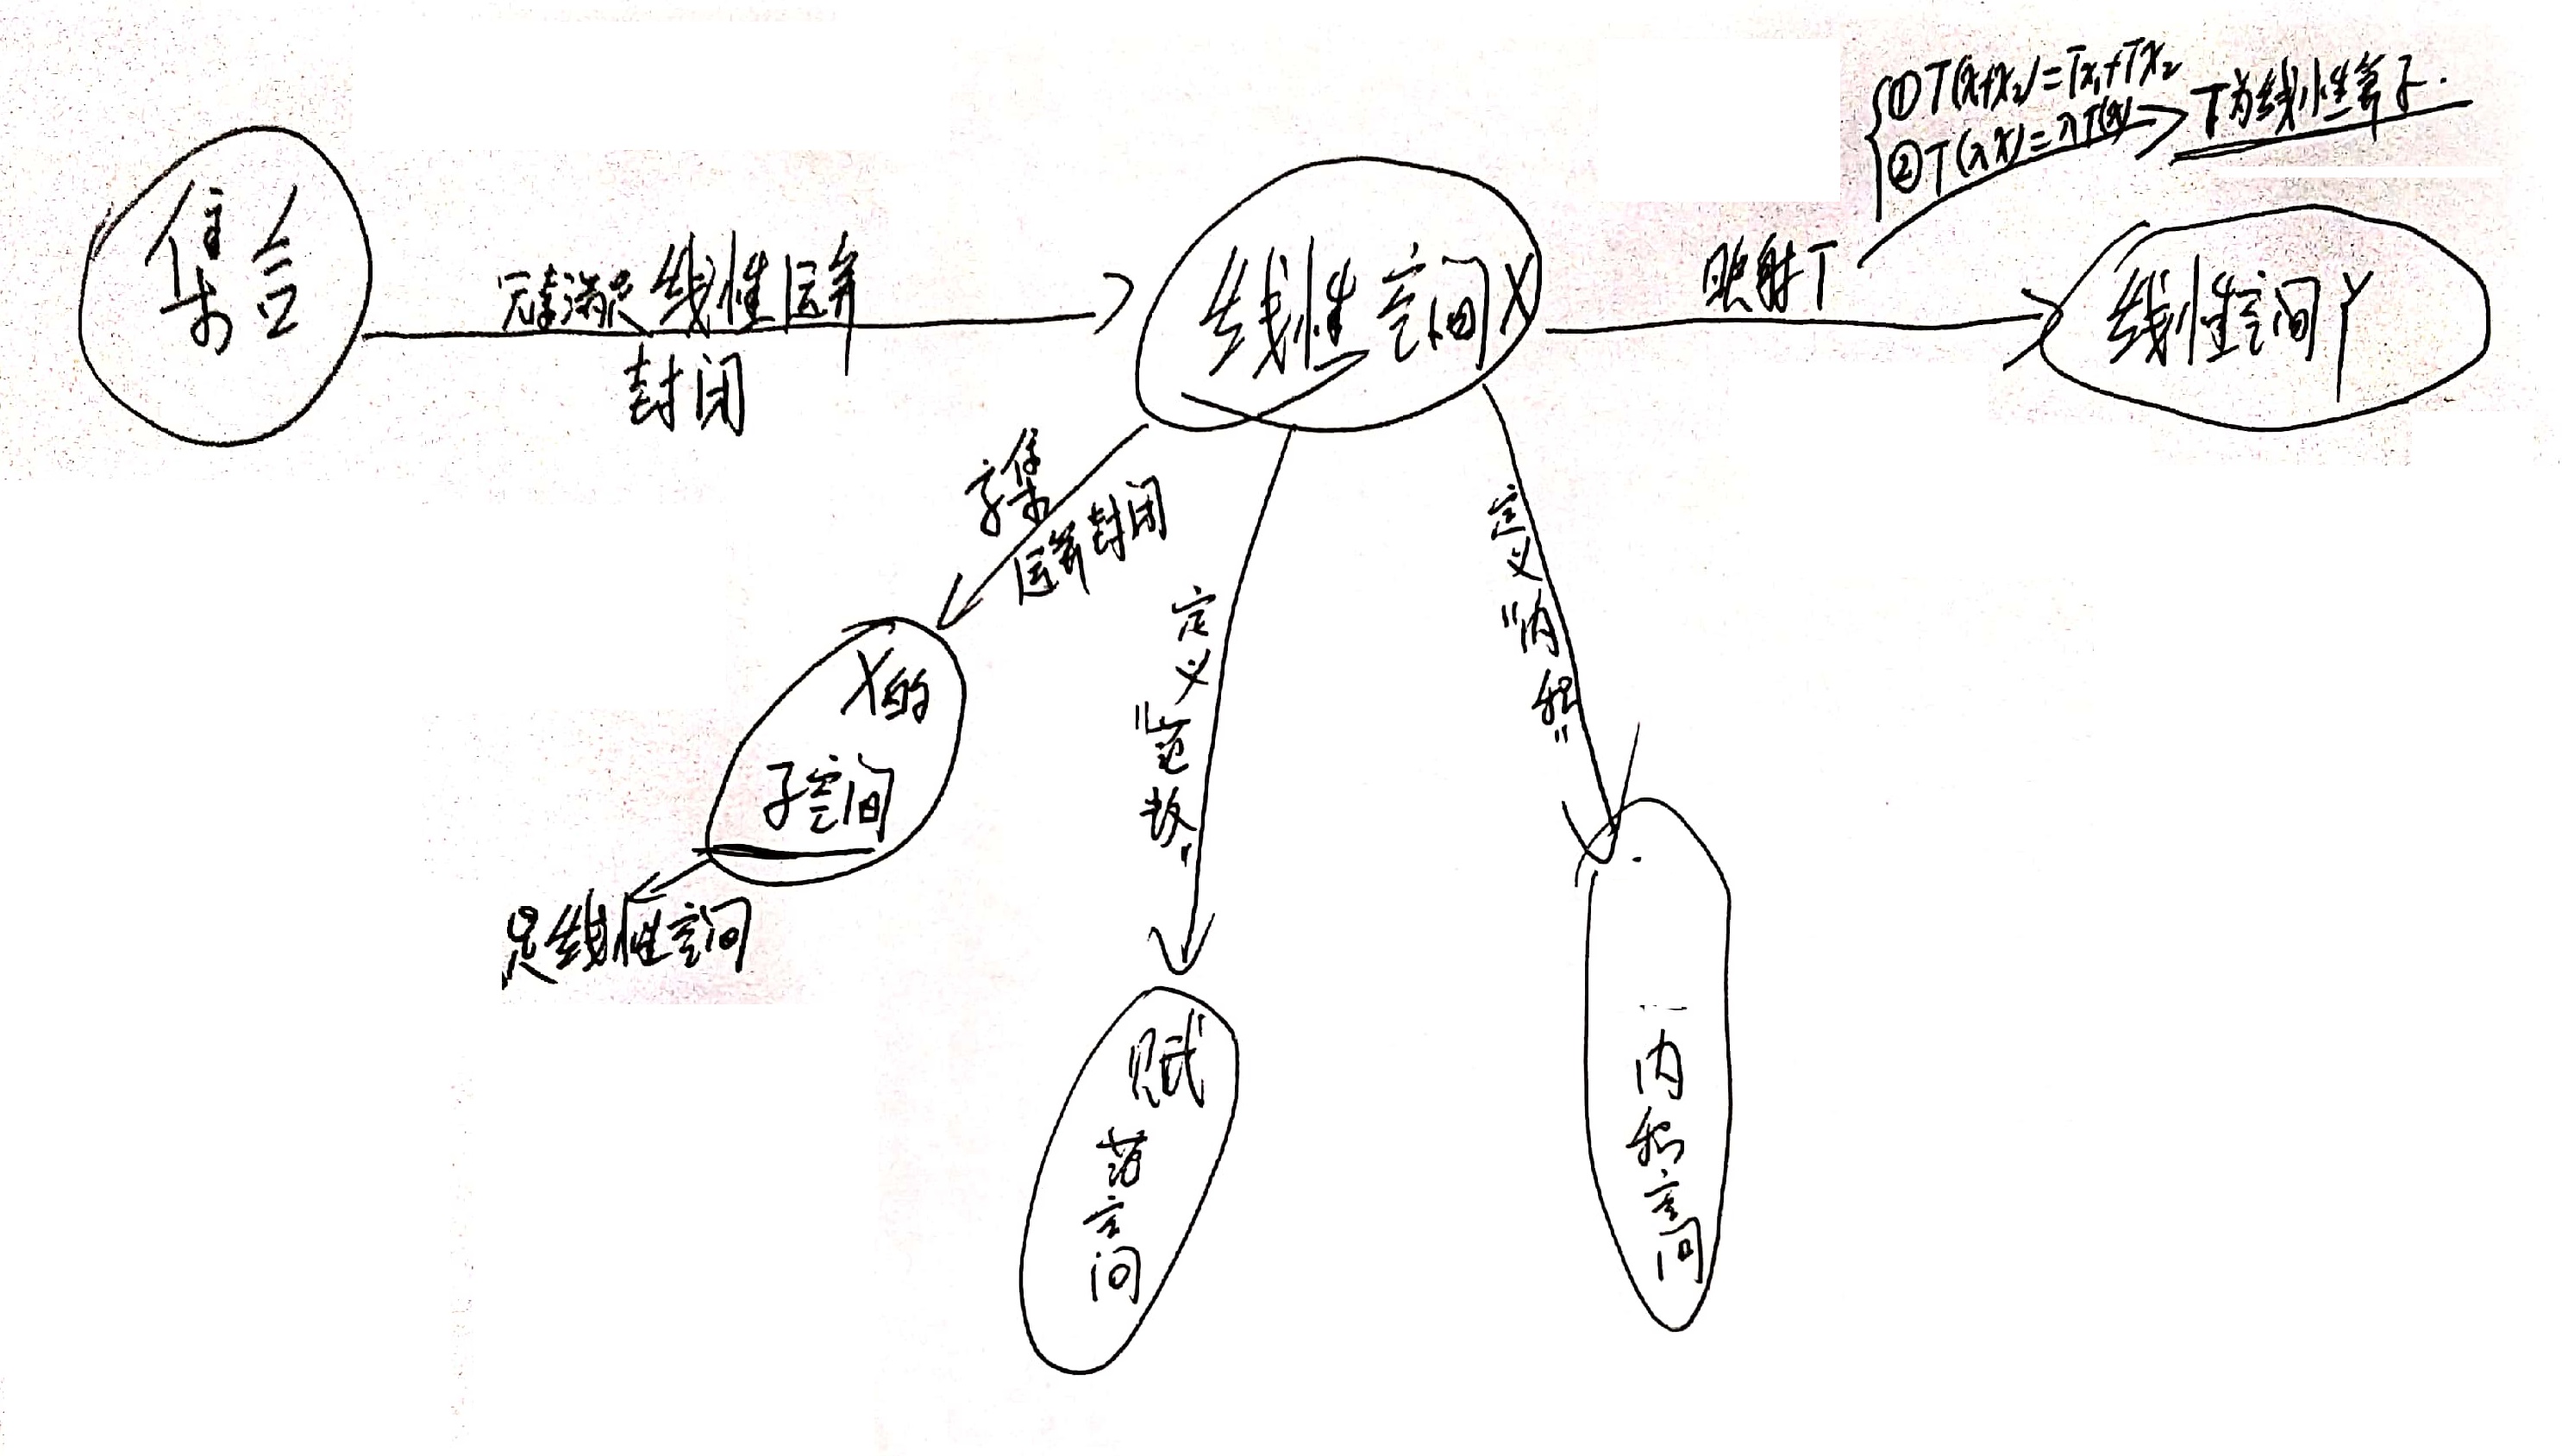 集合
元素满足线性运算
封闭
线性空间X
映射T
①T(x₁+x₂)=Tx₁+Tx₂
②T(λx)=λT(x)
T为线性算子.
线性空间Y
子集
运算封闭
X的
子空间
是线性空间
定义"范数"
赋范空间
定义"内积"
内积空间